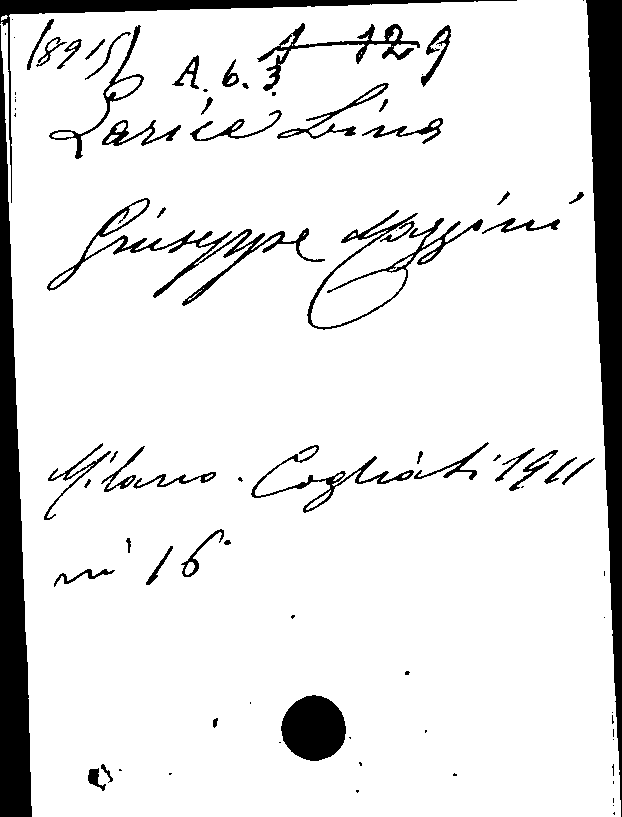 (8915) A 129
A. 6. 3
Larice Lina
Giuseppe Mazzini
Milano. Cogliati 1911
in 16°